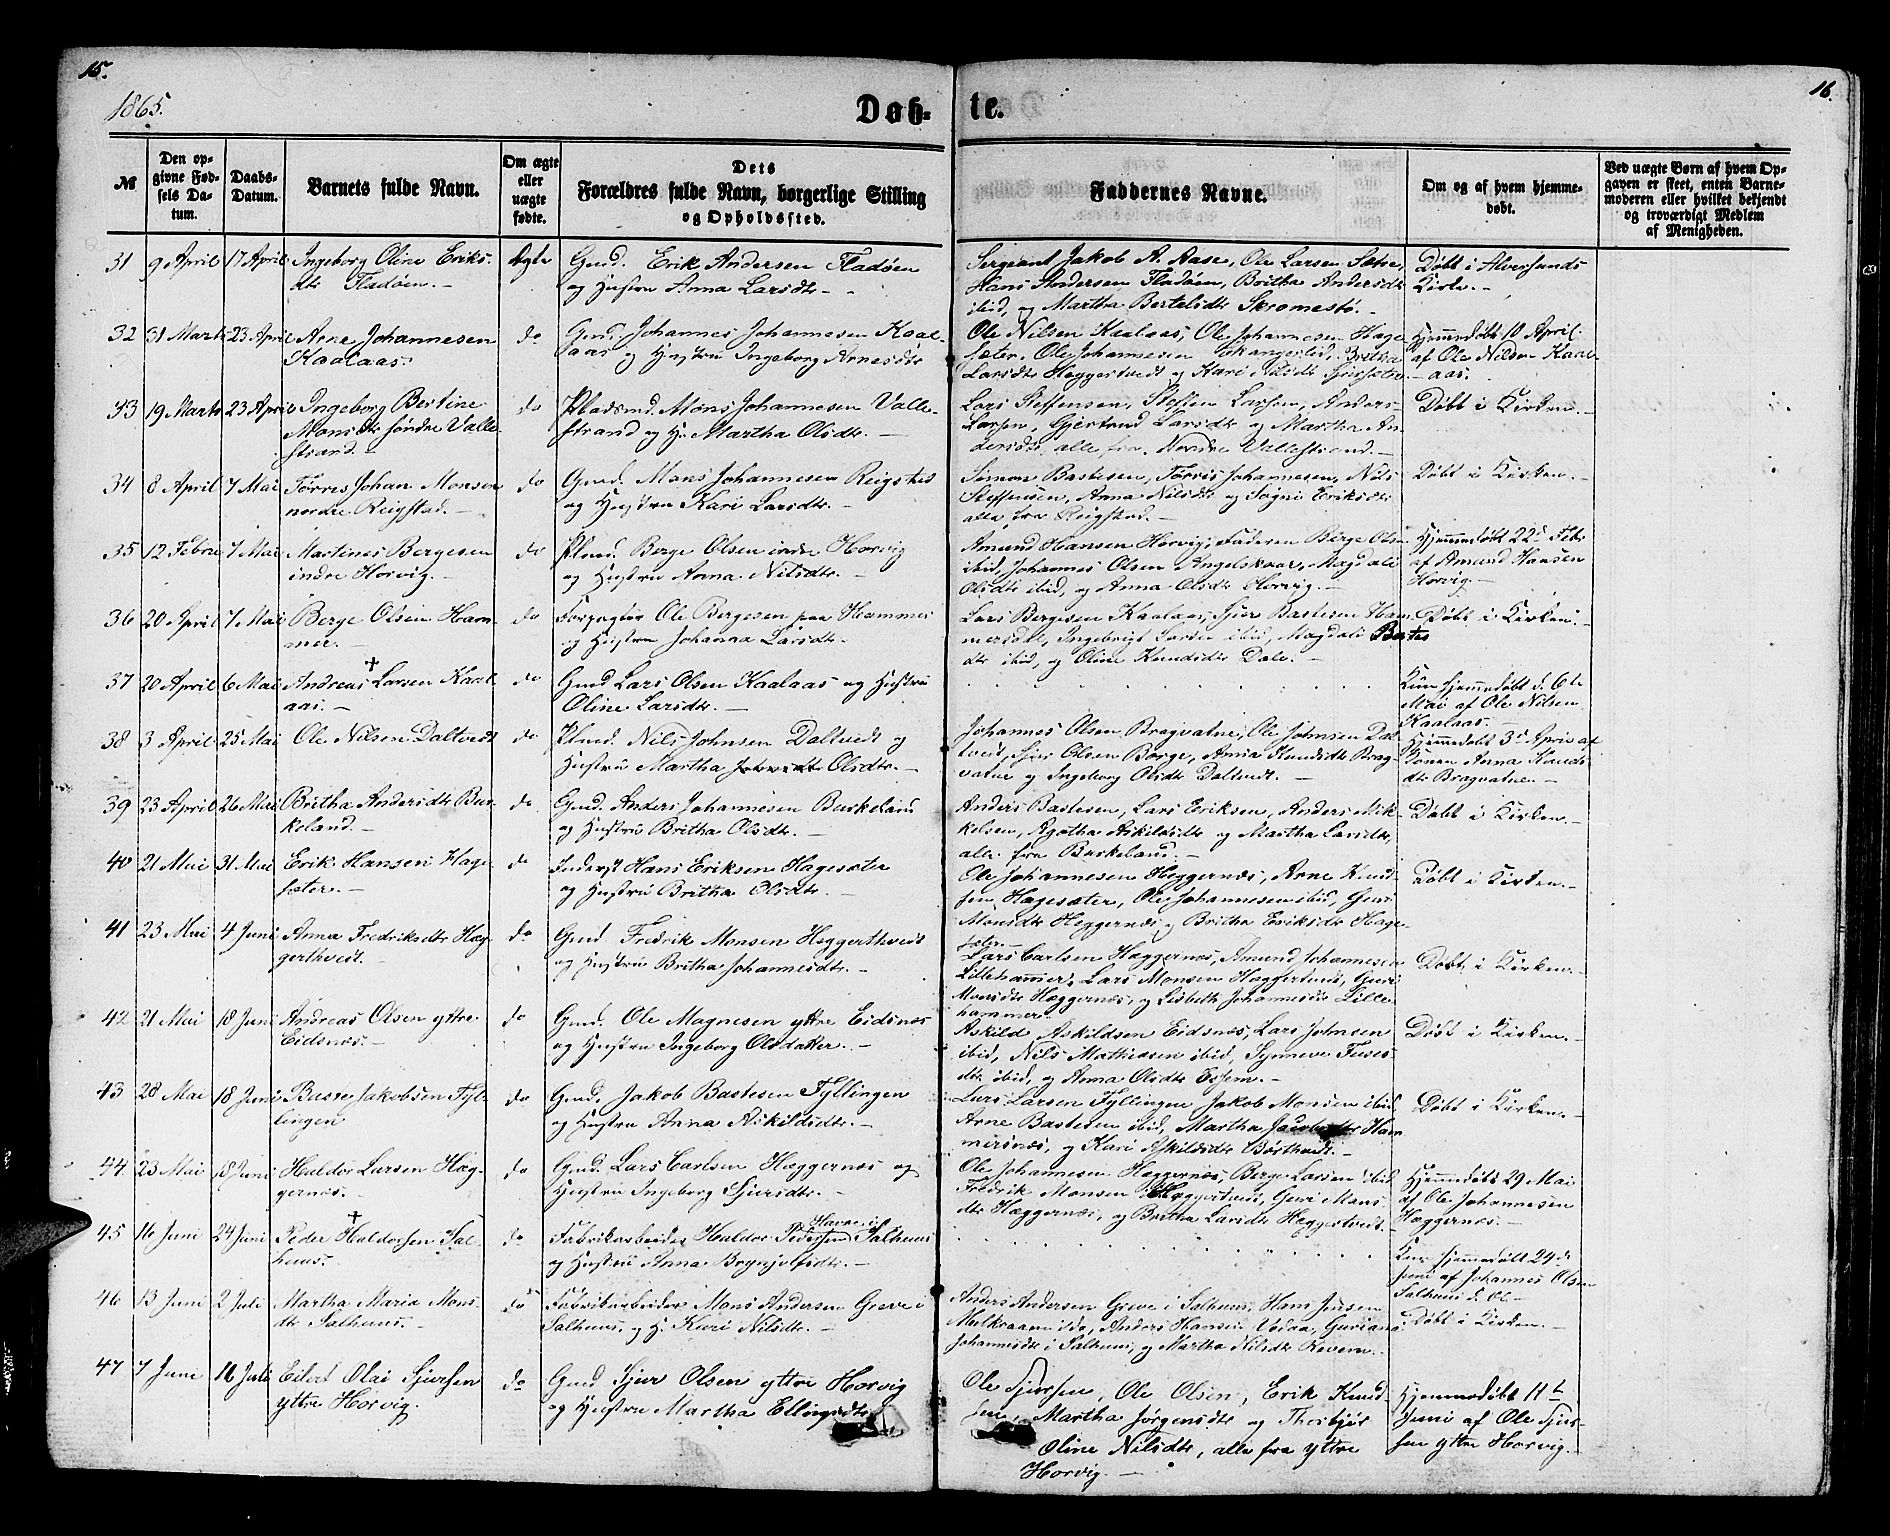 15.
16.
1865.
Døb-
te.
№
Den op-
givne Fød-
sels Da-
tum.
Daabs-
Datum.
Barnets fulde Navn.
Om ægte
eller
uægte
fødte.
Dets
Forældres fulde Navn, borgerlige Stilling
og Opholdssted.
Faddernes Navne.
Om og af hvem hjemme-
døbt.
Ved uægte Børn af hvem Op-
gaven er skeet, enten Barne-
moderen eller hvilket bekjendt
og troværdigt Medlem
af Menigheden.
31 9 April 17 April Ingeborg Oline Eriks-
dtr Fladøen.
ægte
Gmd. Erik Andersen Fladøen
og Hustru Anna Larsdtr
Sergeant Jakob A. Aase, Ole Larsen Sætre,
Hans Andersen Fladøen, Britha Andersdtr
ibid, og Martha Bertelsdtr Skromestø.
Døbt i Alversunds
Kirke.
32 31 Marts 23 April Arne Johannesen
Kaalaas.
do
Gmd. Johannes Johannesen Kaal-
aas og Hustru Ingeborg Arnesdtr
Ole Nilsen Kaalaas, Ole Johannesen Hage-
sæter, Ole Johannesen Britha
Larsdtr Heggertvedt og Kari Nilsdtr
Hjemmedøbt 10 April
af Ole Nilsen Kaal-
aas.
33 19 Marts 23 April Ingeborg Bertine
Monsdtr søndre Valle-
strand.
do
Pladsmd. Mons Johannesen Valle-
strand og H. Martha Olsdtr.
Lars Steffensen, Steffen Larsen, Anders
Larsen, Gjertrud Larsdtr og Martha An-
dersdtr, alle fra Nordre Vallestrand.
Døbt i Kirken.
34 8 April 7 Mai Tørres Johan Monsen
nordre Reigstad.
do
Gmd. Mons Johannesen Reigstad
og Hustru Kari Larsdtr.
Simon Bastesen, Torris Johannesen, Nils
Steffensen, Anna Nilsdtr og Sogni Eriksdtr
alle fra Reigstad.
Døbt i Kirken.
35 12 Febr 7 Mai Martines Bergesen
indre Horvig.
do
Plmd. Berge Olsen indre Horvig
og Hustru Anna Nilsdtr.
Amund Hansen Horvig, Faderen Berge Olsen
ibid, Johannes Olsen Engelskaar, Magdali
Olsdtr ibid, og Anna Olsdtr Horvig.
Hjemmedøbt 22d Feb
af Amund Hansen
Horvig.
36 20 April 7 Mai Berge Olsen Ham-
mer.
do
Forpagter Ole Bergesen paa Hammer
og Hustru Johanna Larsdtr.
Lars Bergesen Kaalaas, Sjur Bastesen Ham-
mersdal, Ingebrigt Larsen ibid, Magdali Bastes
dtr ibid, og Oline Knudsdtr Dale.
Døbt i Kirken.
37 20 April 6 Mai Andreas † Larsen Kaal-
aas.
do
Gmd Lars Olsen Kaalaas og Hustru
Oline Larsdtr.
Kun hjemmedøbt d. 6te
Mai af Ole Nilsen
Kaalaas.
38 3 April 25 Mai Ole Nilsen Daltvedt
do
Plmd. Nils Johnsen Daltvedt og
Hustru Martha Olsdtr.
Johannes Olsen Bragvatne, Ole Johnsen Dal-
tvedt, Sjur Olsen Borge, Anna Knudsdtr Brag-
vatne og Ingeborg Olsdtr Daltvedt.
Hjemmedøbt 3d April af
Konen Anna Knuds
dtr Bragvatne.
39 23 April 26 Mai Britha Andersdtr Bur-
keland.
do
Gmd. Anders Johannesen Burkeland
og Hustru Britha Olsdtr.
Anders Bastesen, Lars Eriksen, Anders Mik-
kelsen, Agatha Askildsdtr og Martha Larsdtr,
alle fra Burkeland.
Døbt i Kirken.
40 21 Mai 31 Mai Erik Hansen Hage-
sæter.
do
Inderst Hans Eriksen Hagesæter
og Hustru Britha Olsdtr.
Ole Johannesen Heggernæs, Arne Knud-
sen Hagesæter, Ole Johannesen ibid, Guri
Monsdtr Heggernæs, og Britha Eriksdtr Hage-
sæter.
Døbt i Kirken.
41 23 Mai 4 Juni Anna Fredriksdtr Hæg-
gerthvedt.
do
Gmd. Fredrik Monsen Heggerthvedt
og Hustru Britha Johannesdtr.
Lars Carlsen Hæggernæs, Amund Johannesen
Lillehammer, Lars Monsen Hæggertvedt, Guri
Monsdtr Hæggernæs, og Lisbeth Johannesdtr Lille-
hammer.
Døbt i Kirken.
42 21 Mai 18 Juni Andreas Olsen yttre
Eidsnæs.
do
Gmd. Ole Magnesen yttre Eidsnæs
og Hustru Ingeborg Olsdatter.
Askild Askildsen Eidsnæs, Lars Johnsen
ibid, Nils Mathiasen ibid, Synneve Tures-
dtr ibid, og Anna Olsdtr Essem.
Døbt i Kirken.
43 28 Mai 18 Juni Baste Jakobsen Fyl-
lingen
do
Gmd. Jakob Bastesen Fyllingen
og Hustru Anna Askildsdtr.
Lars Larsen Fyllingen, Jakob Monsen ibid,
Arne Bastesen ibid, Martha Jacobsdtr Ham-
mersnæs, og Kari Askildsdtr
Døbt i Kirken.
44 23 Mai 18 Juni Haldor Larsen Hæg-
gernæs.
do
Gmd. Lars Carlsen Hæggernæs og
Hustru Ingeborg Sjursdtr.
Ole Johannesen Hæggernæs, Berge Larsen ibid
Fredrik Monsen Heggertvedt, Guri Mons
dtr Hæggernæs, og Britha Larsdtr Heggertvedt.
Hjemmedøbt 29 Mai
af Ole Johannesen
Hæggernæs.
45 16 Juni 24 Juni Peder † Haldorsen Sal-
huus.
do
Fabrikarbeider Haldor Pedersen Havne i Salhuus
og Hustru Anna Brynjolfsdtr.
Kun hjemmedøbt 24de
Juni af Johannes Olsen
Salhuus
46 13 Juni 2 Juli Martha Maria Mons-
dtr Salhuus.
do
Fabrikarbeider Mons Andersen Greve i
Salhuus, og H. Kari Nilsdtr.
Anders Andersen Greve i Salhuus, Hans Jensen
Anders Hansen Vedaa, Guriana
Johannesdtr i Salhuus, og Martha Nilsdtr
Døbt i Kirken.
47 7 Juni 16 Juli Eilert Olai Sjursen
yttre Horvig.
do
Gmd Sjur Olsen yttre Horvig
og Hustru Martha Ellingsdtr
Ole Sjursen, Ole Olsen, Erik Knud-
sen, Martha Jørgensdtr og Thorbjør
Oline Nilsdtr, alle fra yttre
Horvig.
Hjemmedøbt 11te
Juni af Ole Sjur-
sen yttre Horvig.